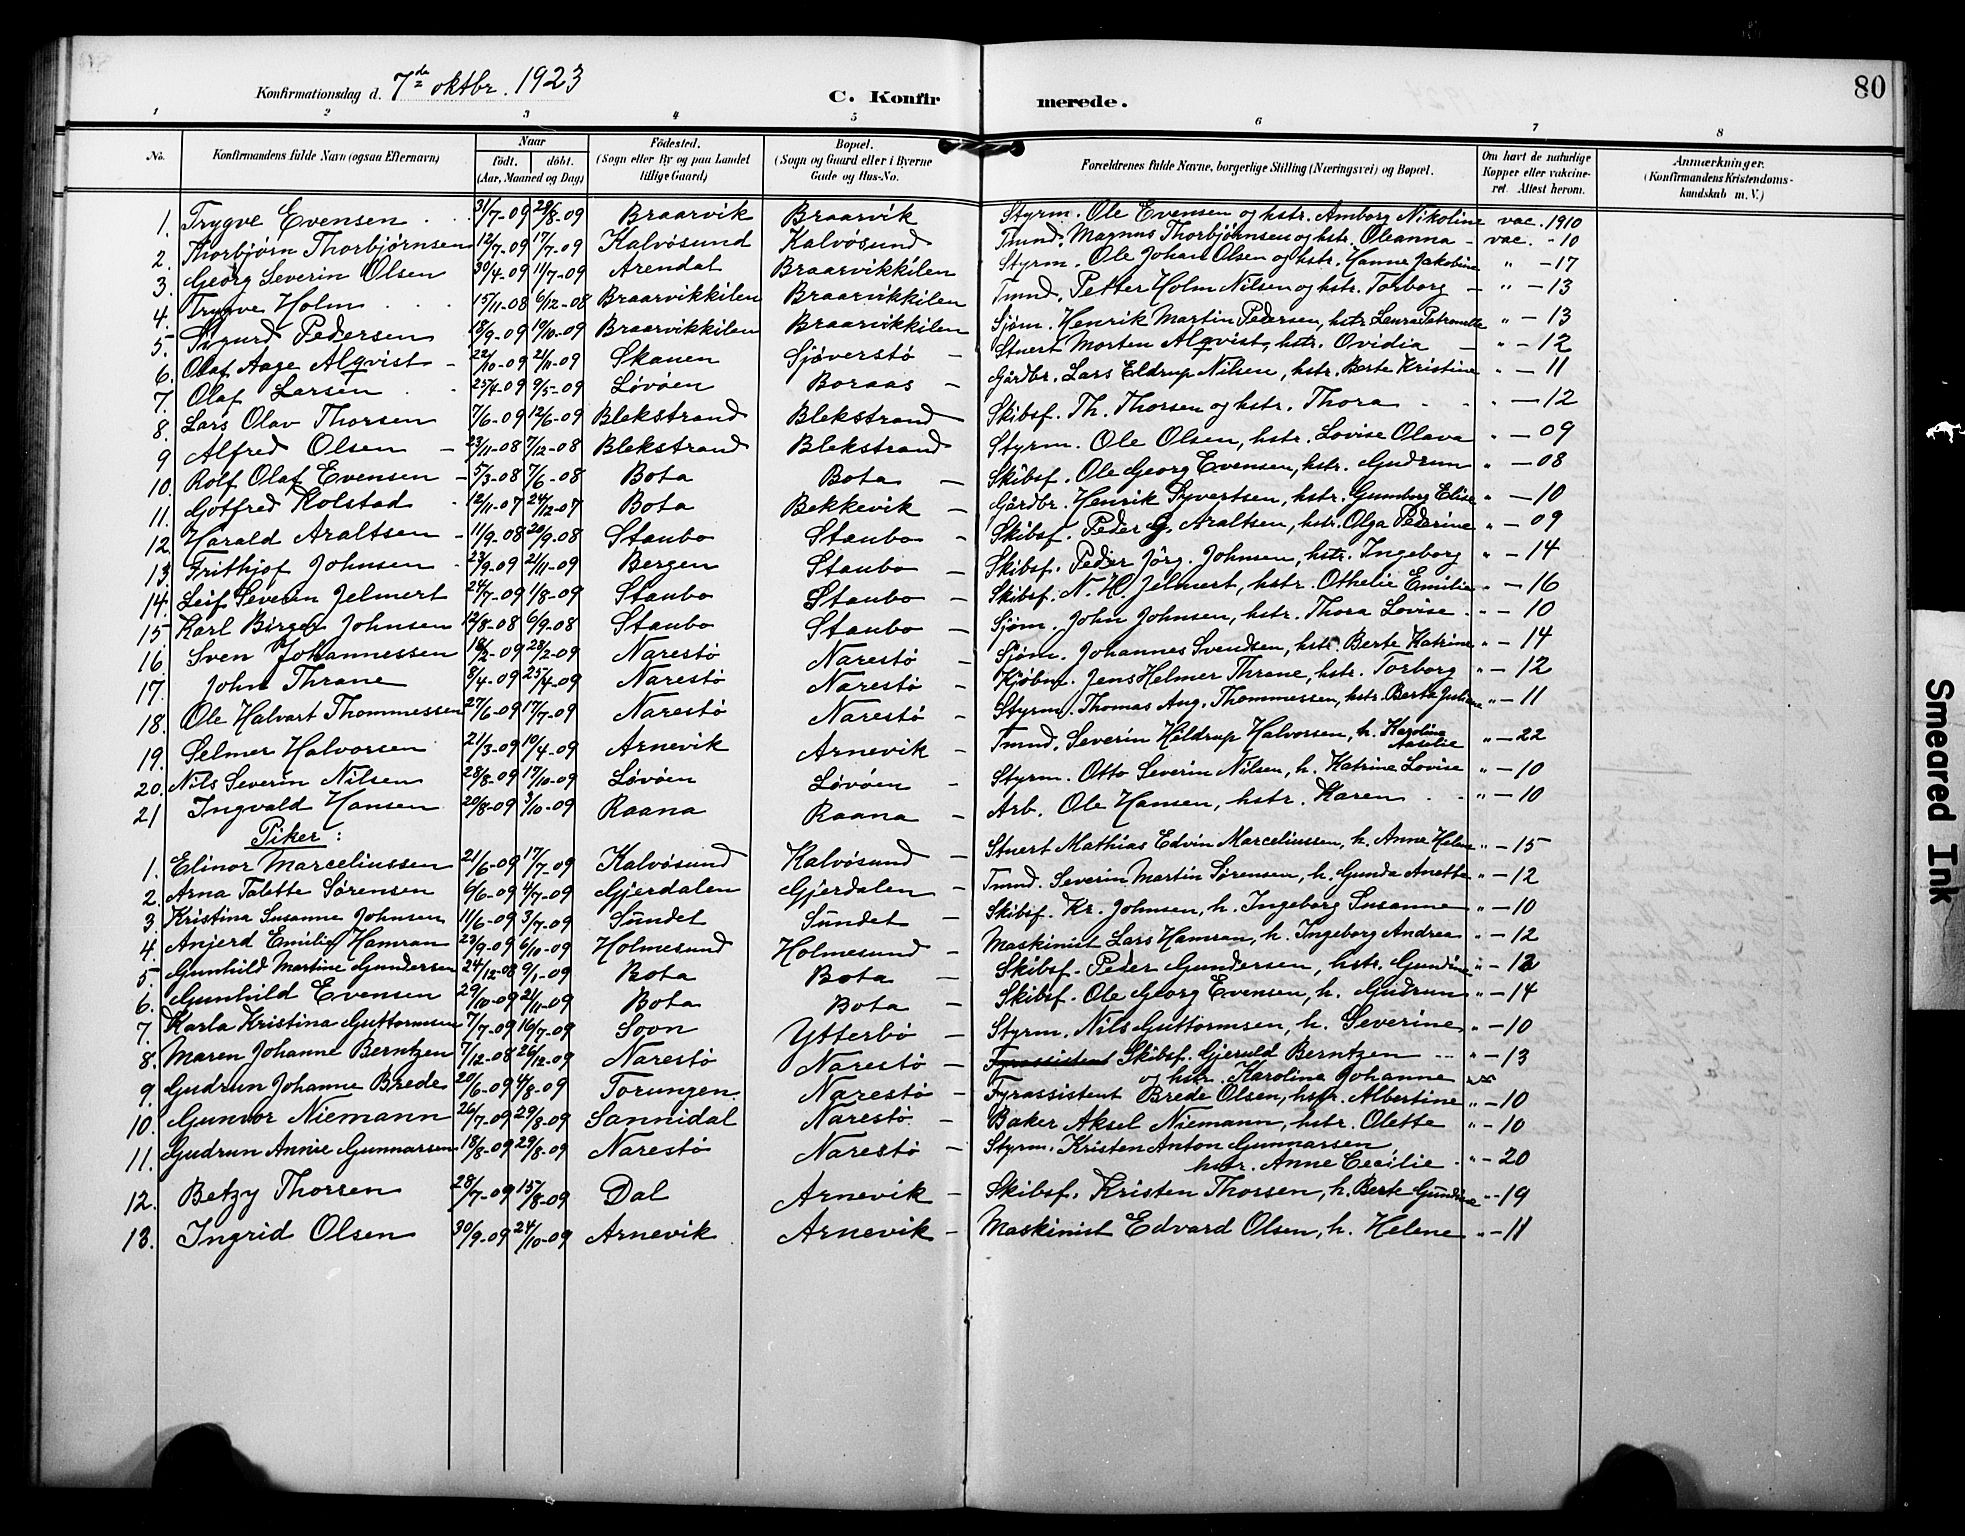 80
Konfirmationsdag d. 7de oktbr. 1923
C. Konfirmerede.
1 2 3 4 5 6 7 8
No. Konfirmandens fulde Navn (ogsaa Efternavn) Naar födt. döbt. (Aar, Maaned og Dag) Födested. (Sogn eller By og paa Landet tillige Gaard) Bopæl. (Sogn og Gaard eller i Byerne Gade og Hus-No. Forældrenes fulde Navne, borgerlige Stilling (Næringsvei) og Bopæl. Om havt de naturlige Kopper eller vakcineret. Attest herom. Anmærkninger. (Konfirmandens Kristendomskundskab m. V.)
1. Trygve Evensen 31/7-09 29/8-09 Braarvik Braarvik Styrm. Ole Evensen og hstr. Amborg Nikoline vac. 1910
2. Thorbjörn Thorbjørnsen 12/7-09 17/7-09 Kalvösund Kalvösund Tmnd. Magnus Thorbjørnsen og hstr. Oleanna - vac. " 10
3. Georg Severin Olsen 30/4-09 11/7-09 Arendal Braarvikkilen Styrm. Ole Johan Olsen og hstr. Hanne Jakobine " - 17
4. Trygve Holm 15/11-08 6/12-08 Braarvikkilen Braarvikkilen Tmnd. Petter Holm Nilsen og hstr. Torborg - " - 13
5. Sigurd Pedersen 18/9-09 19/10-09 Braarvikkilen Braarvikkilen Sjøm. Henrik Martin Pedersen, hstr. Laura Petronelle " - 13
6. Olaf Aage Alqvist - 22/10-09 21/11-09 Skauen Sjöverstö - Stuert Morten Alqvist, hstr. Ovidia - " - 12
7. Olaf Larsen 25/4-09 9/5-09 Løvöen Boraas - Gårdbr. Lars Eldrup Nilsen, hstr. Berte Kristine " - 11
8. Lars Olav Thorsen 7/6-09 12/6-09 Blekstrand Blekstrand Skibsf. Th. Thorsen og hstr. Thora " - 12
9 Alfred Olsen - 23/11-08 7/12-08 Blekstrand Blekstrand Styrm. Ole Olsen, hstr. Lovise Olava " - 09
10. Rolf Olaf Evensen - 5/3-08 7/6-08 Bota Bota - Skibsf. Ole Georg Evensen, hstr. Gudrun " - 08
11. Gotfred Kolstad 12/11-07 24/12-07 Bota Bekkevik - Gårdbr. Henrik Syvertsen, hstr. Gunnborg Elise " - 10
12. Harald Araltsen - 11/9-08 20/9-08 Staubo Staubo - Skibsf. Peder G. Araltsen, hstr. Olga Pederine " - 09
13. Frithjof Johnsen 23/9-09 21/11-09 Bergen Staubo - Skibsf. Peder Jörg. Johnsen, hstr. Ingeborg " - 14
14. Leif Severin Jelmert 24/7-09 1/8-09 Staubo Staubo - Skibsf. N. H. Jelmert, hstr. Othelie Emilie " - 16
15 Karl Birger Johnsen 12/8-08 6/9-08 Staubo Staubo - Sjøm. John Johnsen, hstr. Thora Lovise " - 10
16. Sven Johannessen 18/2-09 28/2-09 Narestö Narestö - Sjøm. Johannes Svendsen, hstr. Berte Katrine " - 14
17. John Thrane 8/4-09 25/4-09 Narestö Narestö - Kjöbm. Jens Helmer Thrane, hstr. Torborg " - 12
18. Ole Halvart Thommessen 27/6-09 17/7-09 Narestö Narestö - Styrm. Thomas Aug. Thommessen, hstr. Berta Juliane " - 11
19. Selmer Halvorsen 21/3-09 10/4-09 Arnevik Arnevik - Tmnd. Severin Hildrup Halvorsen, h. Karoline " - 22
20. Nils Severin Nilsen 28/8-09 17/10-09 Løvöen Løvöen - Styrm. Otto Severin Nilsen, h. Katrine Lovise " - 10
21 Ingvald Hansen 20/8-09 3/10-09 Raana Raana - Arb. Ole Hansen, hstr. Karen " - 10
Piker:
1. Elinor Marceliussen 21/6-09 17/7-09 Kalvösund Kalvösund - Stuert Mathias Edvin Marceliussen, h. Anne Helene " - 15
2. Arna Talette Sørensen 6/6-09 4/7-09 Gjerdalen Gjerdalen - Tmnd. Severin Martin Sørensen, h. Gunda Anette " - 12
3. Kristina Susanne Johnsen 11/6-09 3/7-09 Sundet Sundet - Skibsf. Kr. Johnsen, h. Ingeborg Susanne " - 10
4. Anjerd Emilie Hamran 23/9-09 6/10-09 Holmesund Holmesund - Maskinist Lars Hamran, h. Ingeborg Andrea " - 12
5. Gunhild Martine Gundersen 24/12-08 9/1-09 Bota Bota - Skibsf. Peder Gundersen, hstr. Gundine " - 12
6. Gunhild Evensen 29/10-09 21/11-09 Bota Bota - Skibsf. Ole Georg Evensen, h. Gudrun " - 14
7. Karla Kristina Guttormsen 7/7-09 16/7-09 Soon Ytterbö - Styrm. Nils Guttormsen, h. Severine " - 10
8. Maren Johanne Berntzen 7/12-08 26/12-09 Narestö Narestö - Fyrassistent Skibsf. Gjeruld Berntzen " - 13
og hstr. Karoline Johanne
9. Gudrun Johanne Brede 20/6-09 4/8-09 Torungen Narestö - Fyrassistent Brede Olsen, hstr. Albertine " - 10
10. Gunvor Niemann 26/7-09 29/8-09 Sannidal Narestö - Baker Aksel Niemann, hstr. Olette " - 10
11. Gudrun Annie Gunnarsen 18/8-09 29/8-09 Narestö Narestö - Styrm. Kristen Anton Gunnarsen
hstr. Anne Cecilie " - 20
12. Betzy Thorsen 28/7-09 15/8-09 Dal Arnevik - Skibsf. Kristen Thorsen, h. Berte Gundine " - 19
13. Ingrid Olsen 30/9-09 24/10-09 Arnevik Arnevik - Maskinist Edvard Olsen, h. Helene " - 11
Smeared Ink